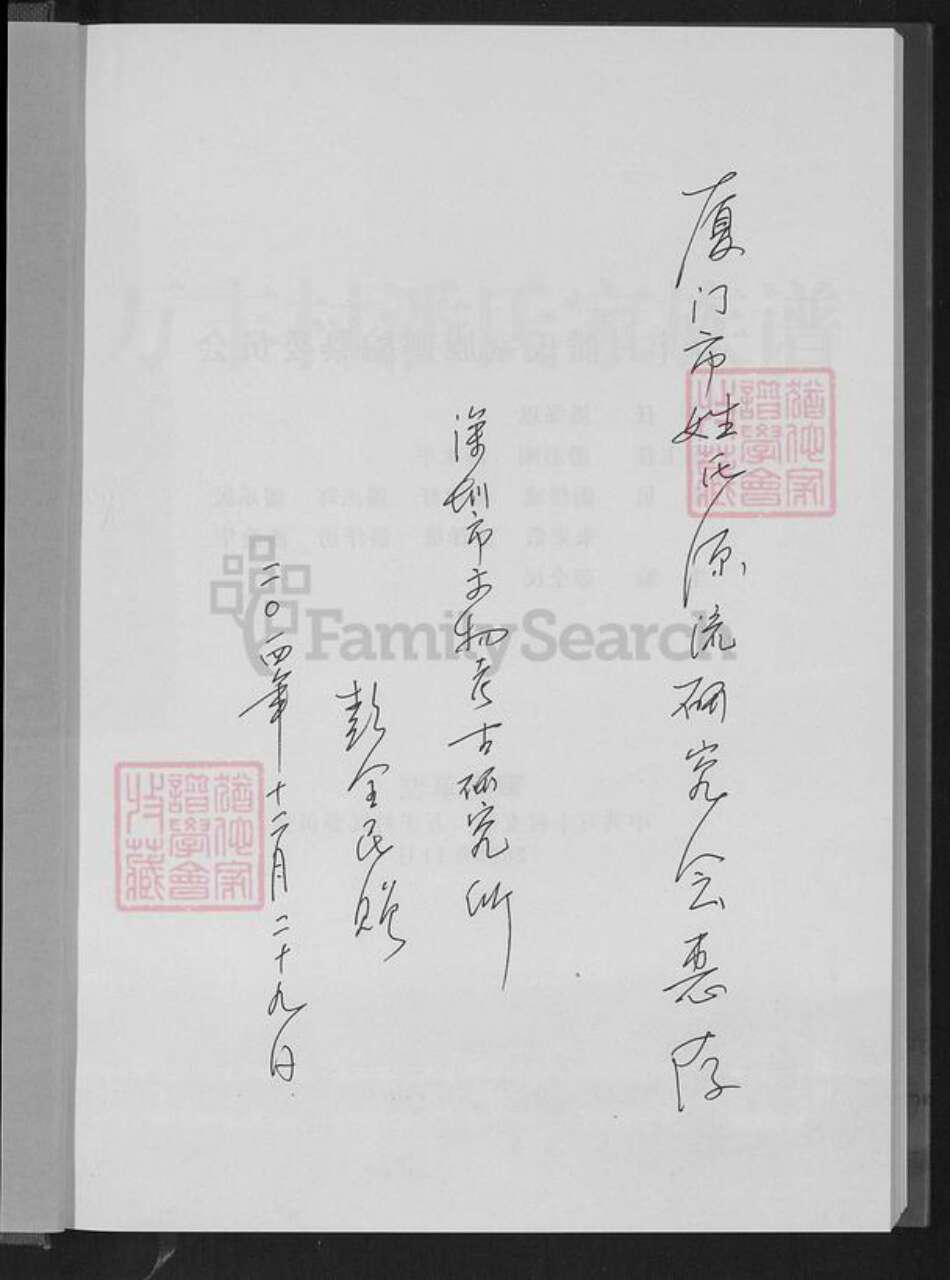 厦门市姓氏源流研究会惠存
深圳市文物考古研究所
彭全民赠
二〇一四年十二月二十九日
譜學會
收藏
譜學會
收藏
FamilySearch